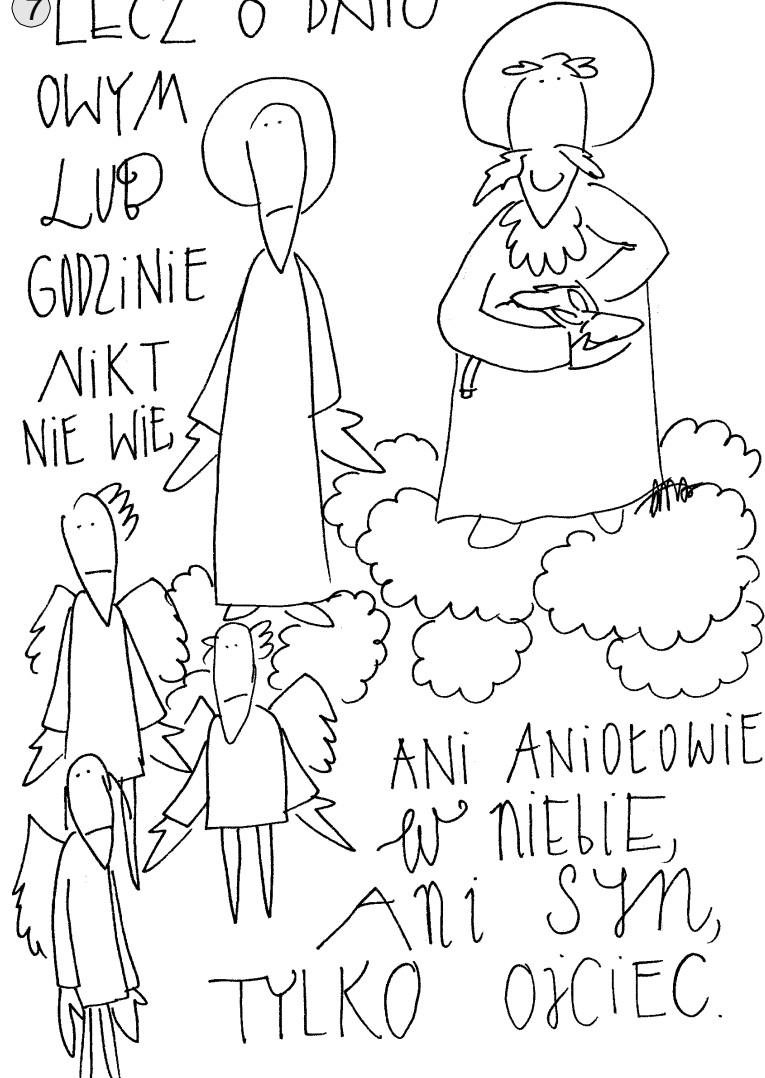 7
LECZ O DNIU
OWYM
LUB
GODZINIE
NIKT
NIE WIE,
ANI ANIOŁOWIE
W NIEBIE,
ANI SYN,
TYLKO OJCIEC.